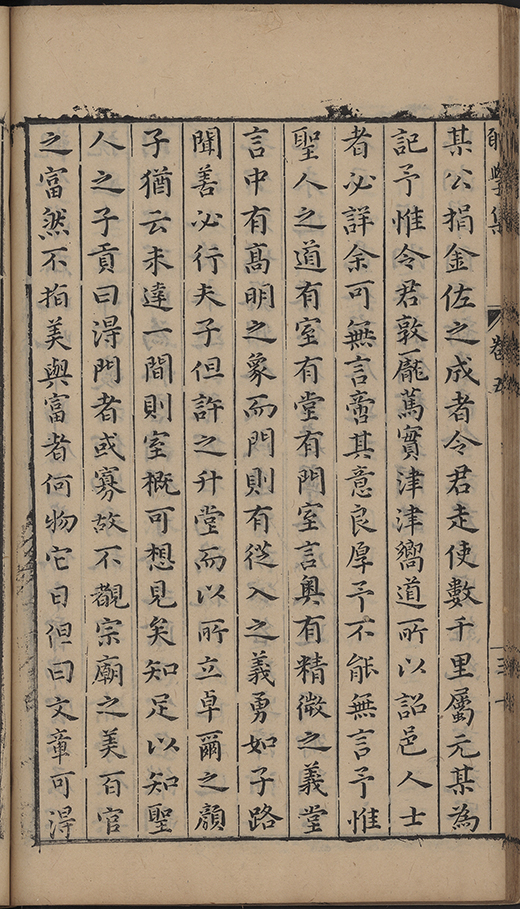 集
卷五
某公捐金佐之成者令君走使數千里屬元某為
記予惟令君敦龐篤實津津嚮道所以詔邑人士
者必詳余可無言啻其意良厚予不能無言予惟
聖人之道有室有堂有門室言奧有精微之義堂
言中有高明之象而門則有從入之義勇如子路
聞善必行夫子但許之升堂而以所立卓爾之顏
子猶云未達一間則室概可想見矣知足以知聖
人之子貢曰得門者或寡故不覩宗廟之美百官
之富然不指美與富者何物它日但曰文章可得